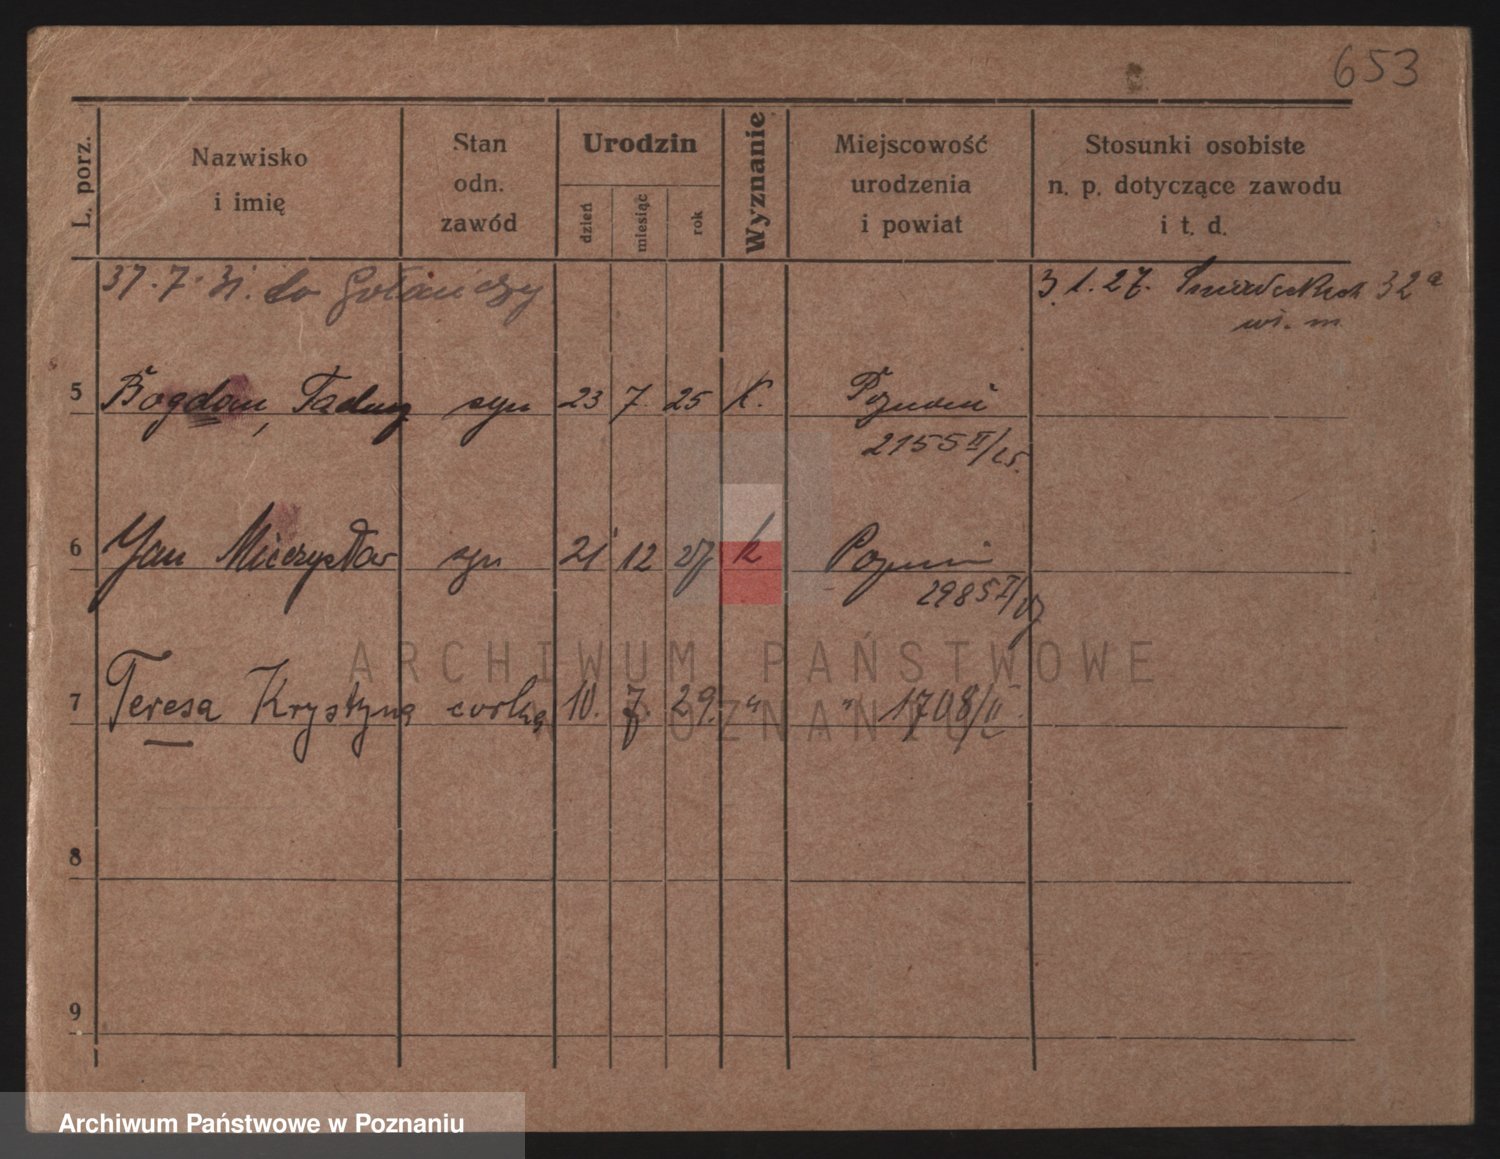 653
L. porz.
Nazwisko
i imię
Stan
odn.
zawód
Urodzin
dzień
miesiąc
rok
Wyznanie
Miejscowość
urodzenia
i powiat
Stosunki osobiste
n. p. dotyczące zawodu
i t. d.
37. 7. 31. do Gołańczy
3. 1. 27. Śniadeckich 32a
wi. m
5 Bogdan, Tadeusz syn 23 7. 25 K. Poznań
2155 II/25.
6 Jan Mieczysław syn 21 12 27 k Poznań
2985 II/27
7 Teresa Krystyna córka 10. 7. 29. " " 1708/II.
ARCHIWUM PAŃSTWOWE
W POZNANIU
8
9
Archiwum Państwowe w Poznaniu